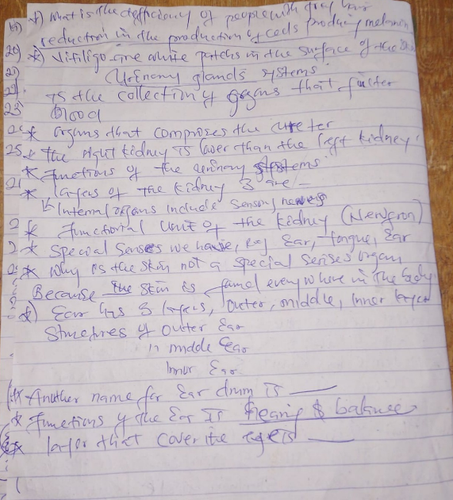 19) * What is the defficiency of people with grey hair
reduction in the production of cells produce melanin
20) * Vitiligo are white patchs in the surface of the
21) Urinony glands systems
is the collection of organs that filter
23 blood
* organs that comprises the ureter
25 * the right kidney is lower than the left kidney
* functions of the urinony systems
* layers of the kidney is are :-
Internal organs include sensory nerves
* functional unit of the kidney (Nenfron)
* Special senses we have, Ear, tongue, Ear
* Why is the skin not a special senses organ
Because the skin is found everywhere in the body
*) Ear has 3 layers, outer, middle, inner layer
Structures of outer Ear
11 middle Ear
Inner Ear
* Another name for Ear drum is ___
* functions of the Ear is hearing & balance
* layer that cover the eye is ___